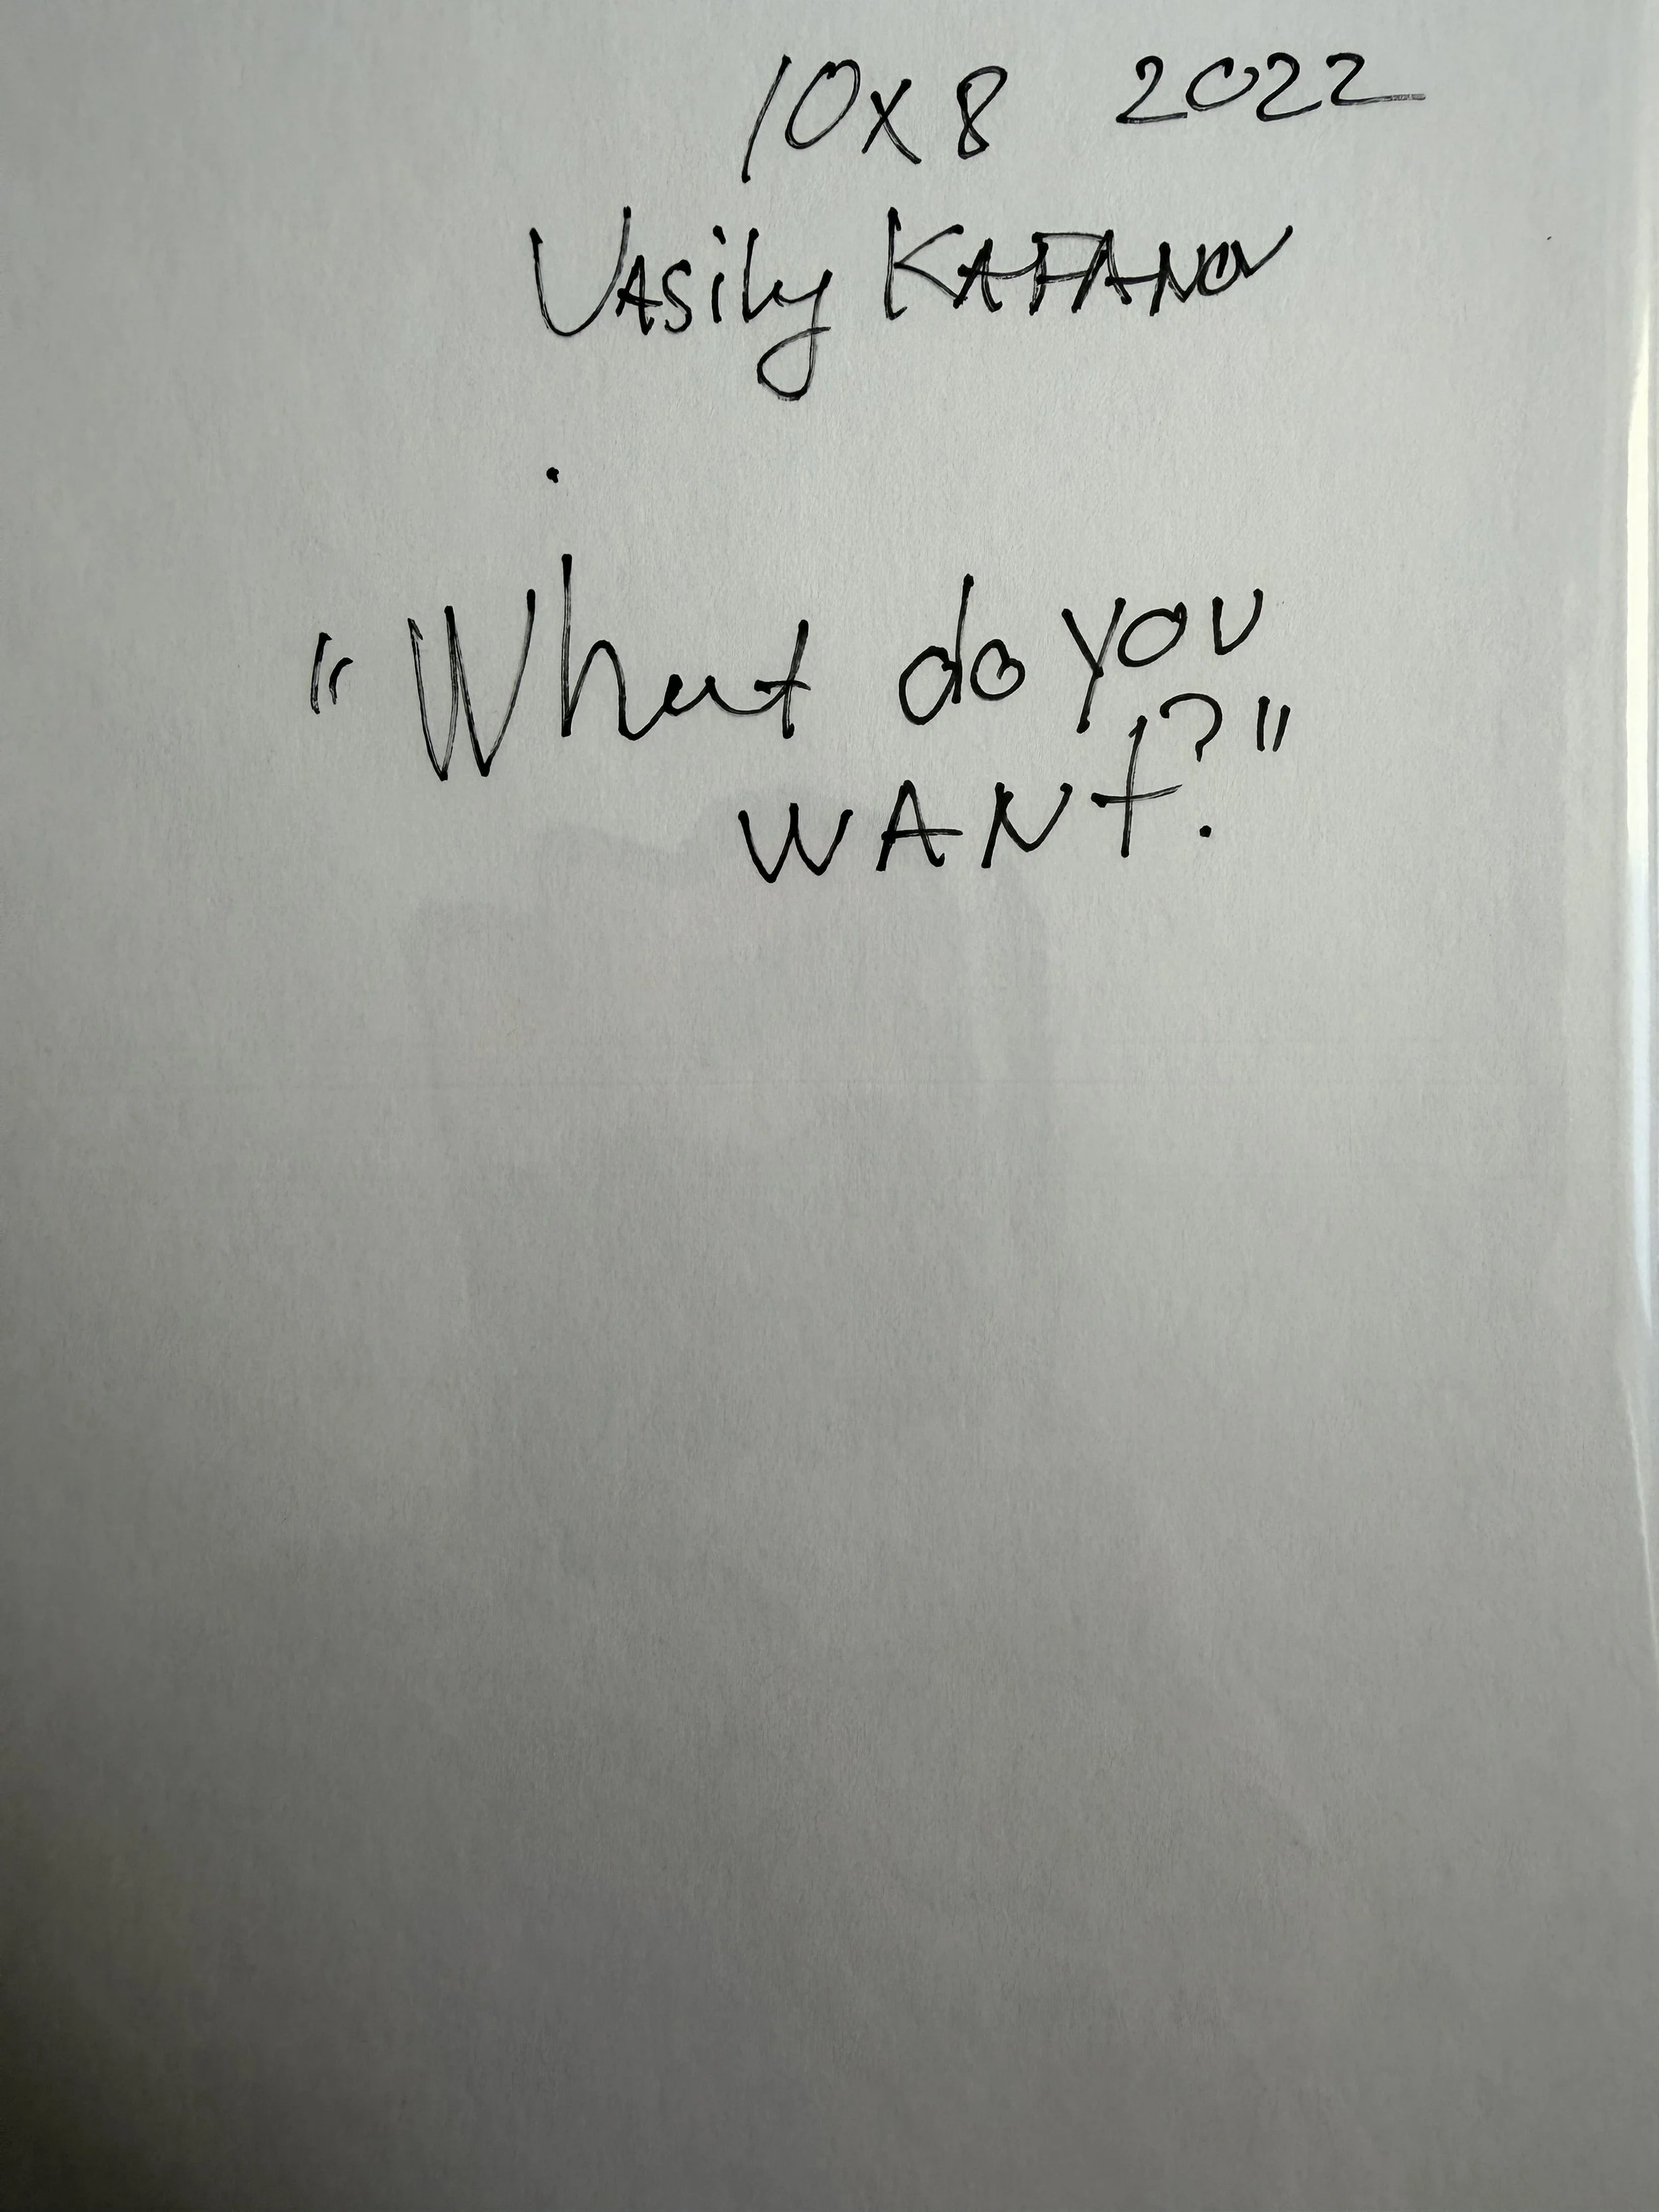 10x8 2022
Vasily KAFANOV
"What do you
WANt?"